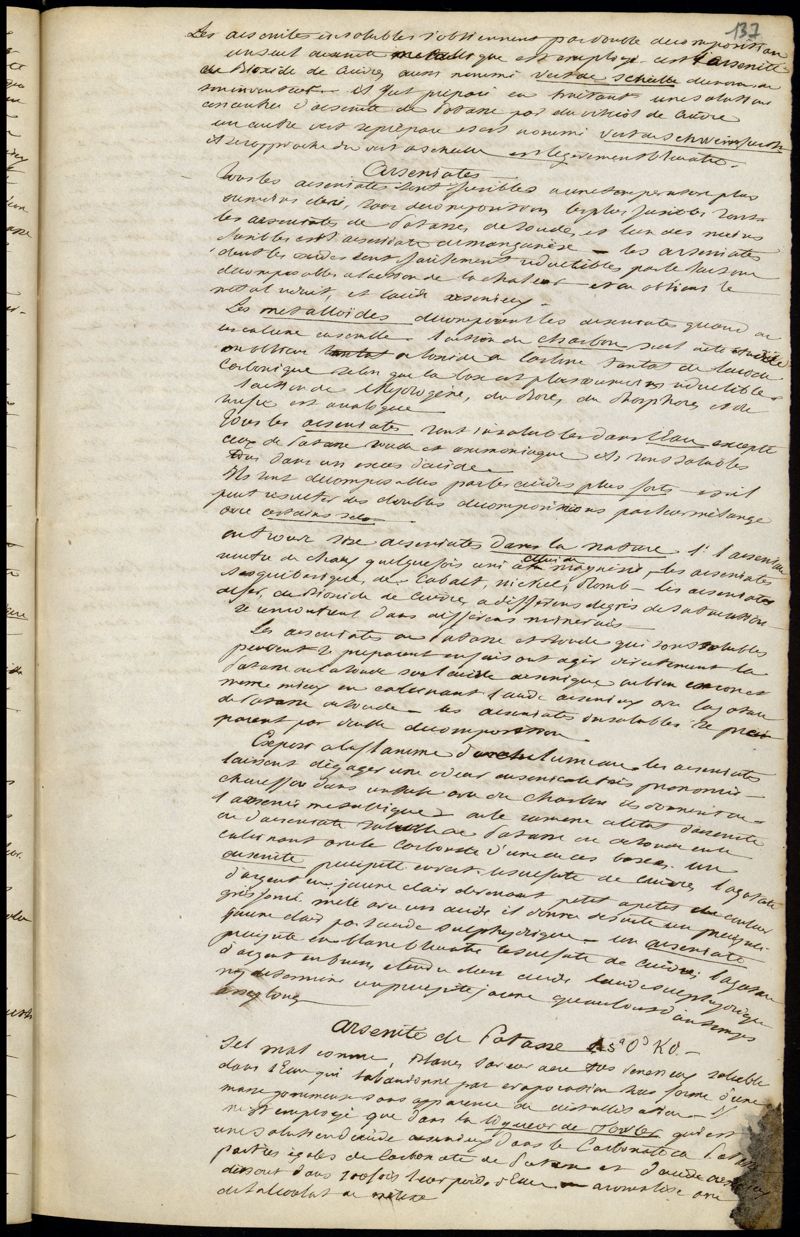 137
Les arsenites insolubles s'obtiennent par double decomposition
un seul arsenite metallique est employé c'est l'arsenite
de Bioxide de Cuivre aussi nommé vert de scheele du nom de
son inventeur — il est préparé en traitant une solution
d'arsenite de Potasse par du vitriol de Cuivre
un autre vert se prépare et est nommé vert de Schweinfurth
il se rapproche du vert de scheele est légèrement bleuatre.
Arseniates
Tous les arseniates sont fusibles a une temperature plus
ou moins élevée, sans decomposition les plus fusibles sont
les arseniates de Potasse, de soude, et l'un des moins
fusibles est l'arseniate de manganèse — les arseniates
dont les oxides sont facilement reductibles par la chaleur
decomposables a l'action de la chaleur — et on obtient le
metal reduit, et l'acide arsenieux.
Les metalloïdes decomposent les arseniates quand on
les calcine ensemble. l'action du charbon
on obtient tantot de l'oxide de Carbone tantot de l'acide
Carbonique selon que la base est plus ou moins reductible.
l'action de l'hydrogène, du Bore, du Phosphore et de
est analogue
Tous les arseniates sont insolubles dans l'Eau excepté
ceux de Potasse soude et ammoniaque ils sont solubles
tous dans un exces d'acide.
Ils sont decomposables par les acides plus forts — et il
peut resulter des doubles decompositions par leur mélange
avec certains sels
on trouve six arseniates dans la nature 1° l'arseniate
neutre de chaux quelquefois uni a celui de magnésie, les arseniates
sesquibasique, de Cobalt, nickel, Plomb — les arseniates
de fer, de Bioxide de Cuivre, a differens degrés de saturation
se rencontrent dans differens minerais
Les arseniates de Potasse et soude qui sont solubles
peuvent se preparer en faisant agir directement la
Potasse ou la soude sur l'acide arsenique ou bien encore et
même mieux en calcinant l'acide arsenieux avec l'azotate
de Potasse ou soude — les arseniates insolubles se pre-
parent par double decomposition
Exposé a la flamme du chalumeau les arseniates
laissent dégager une odeur arsenicale très prononcée
chauffés dans un tube avec du charbon ils donnent de
l'arsenic metallique — on le ramene a l'etat d'arsenite
ou d'arseniate soluble de Potasse ou de soude en le
calcinant avec le Carbonate d'une de ces bases. Un
arsenite precipite en vert le sulfate de Cuivre, l'azotate
d'argent en jaune clair devenant petit a petit de couleur
gris foncé mêlé avec un acide il donne de suite un precipité
jaune clair par l'acide sulphydrique — un arseniate
precipite en blanc bleuatre le sulfate de Cuivre; l'azotate
d'argent en brun, etendu d'un acide l'acide sulphydrique
n'y determine un precipité jaune qu'au bout d'un temps
assez long
Arsenite de Potasse As² O³ KO. —
Sel mal connu, blanc saveur acre très veneneux soluble
dans l'Eau qui l'abandonne par evaporation sous forme d'une
masse gommeuse sans apparence de cristallisation — Il
n'est employé que dans la liqueur de Fowler qui est
une solution d'acide arsenieux dans le Carbonate de Potasse
parties egales de Carbonate de Potasse et d'acide arsenieux
dissout dans 100 fois leur poids d'Eau — aromatisé avec
de l'alcoolat de mélisse